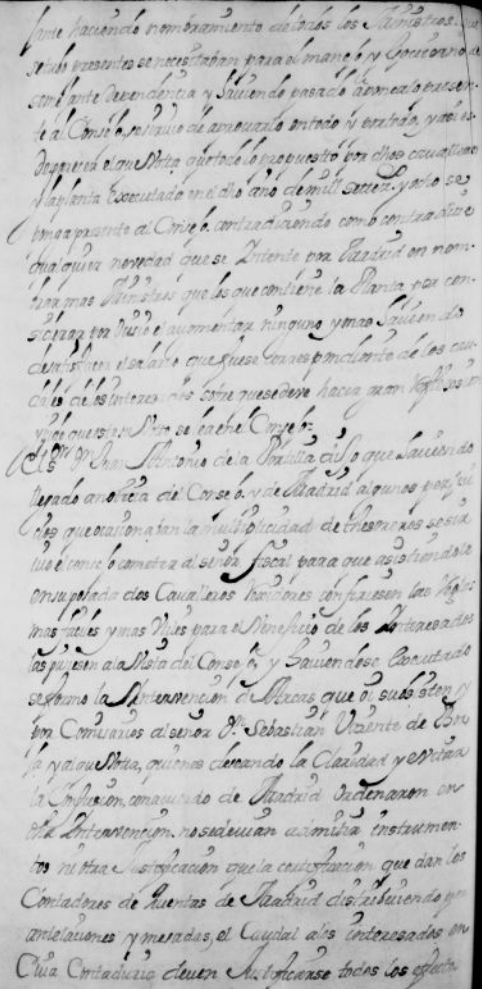 haciendo nombramiento de todos los Ministros que
presentes se necesitaban para el manejo y Govierno de
semejante dependencia y haviendo pasado a presen-
te al Consejo, se sirvio de aprovarlo en todo y por todo, y
de parecer el que Vota que todo lo propuesto por dhos cavalleros
y la planta Executado en el dho año de mill setecs. y ocho se
ponga presente al Consejo. contradiciendo como contradice
qualquier novedad que se Intente por Madrid en nom-
brar mas Ministros que los que contiene la Planta por con-
siderar por el aumentar ninguno y mas haviendo
de satisfacer el salario que fuese correspondiente de los cau-
dales de los interesados sobre que se deve hacer gran
y pide que este su Voto se lea en el Consejo:
El Sr. Dn Juan Antonio de la Portilla dijo que haviendo
llegado a noticia del Consejo. y de Madrid algunos perjui-
cios que ocasionaban la multiplicidad de thesoreros se sir-
vio el cometer al señor fiscal para que asistiendole
en su posada dos Cavalleros Rexidores confiriesen las Reglas
mas faciles y mas utiles para el Veneficio de los Interesados
las pusiesen a la Vista del Consejo, y haviendose Executado
se formo la Yntervencion de que oi subsisten y
por Comisarios al señor Dn. Sebastian Vicente de
y al que Vota, quienes deseando la Claridad y evitar
la Confusion, con acuerdo de Madrid ordenaron en
dha Intervencion. no se devian admitir instrumen-
tos ni otra Justificacion que la certificacion que dan los
Contadores de Quentas de Madrid distribuiendo por
antelaciones y mesadas, el Caudal a los interesados en
Cuia Contaduria deven Justificarse todos los efectos